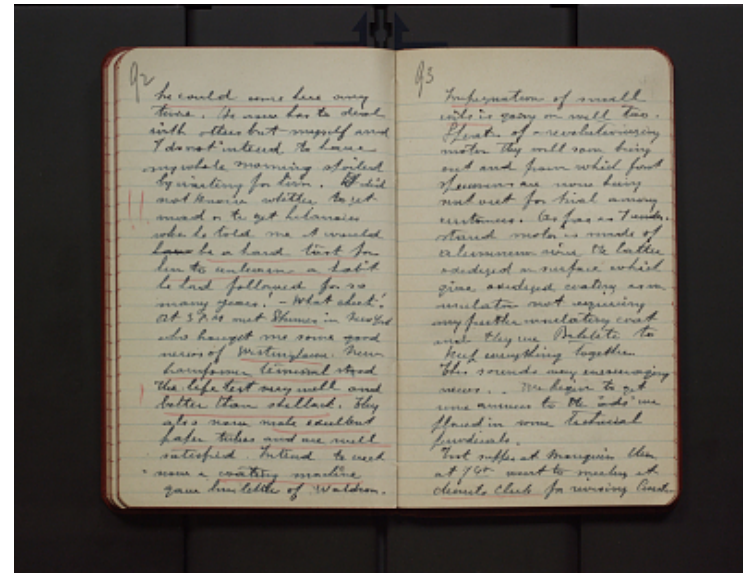 92
he could come here any
time. He now has to deal
with others but myself and
I do not intend to have
my whole morning spoiled
by waiting for him. I did
not know whether to get
mad or to get hilarious
when he told me it would
be a hard task for
him to unlearn a habit
he had followed for so
many years! - What cheek!
At 3 P.M. met in New York
who brought me some good
news of Westinghouse. New
transformer terminal stood
the life test very well and
better than shellack. They
also now make excellent
paper tubes and are well
satisfied. Intend to need
now a coating machine
gave him letter of Waldron.
93
Impregnation of small
coils is going on well too.
of a revolutionizing
motor they will soon bring
out and from which first
specimens are now being
sent out for trial among
customers. As far as I under-
stand motor is made of
aluminum wire the latter
oxidized on surface which
give oxidized coating as an
insulator not requiring
any further insulating coat
and they use Bakelite to
keep everything together.
This sounds very encouraging
news. - We begin to get
some answers to the "ads" we
placed in some technical
periodicals.
Took supper at then
at went to meeting at
Chemists Club for revising